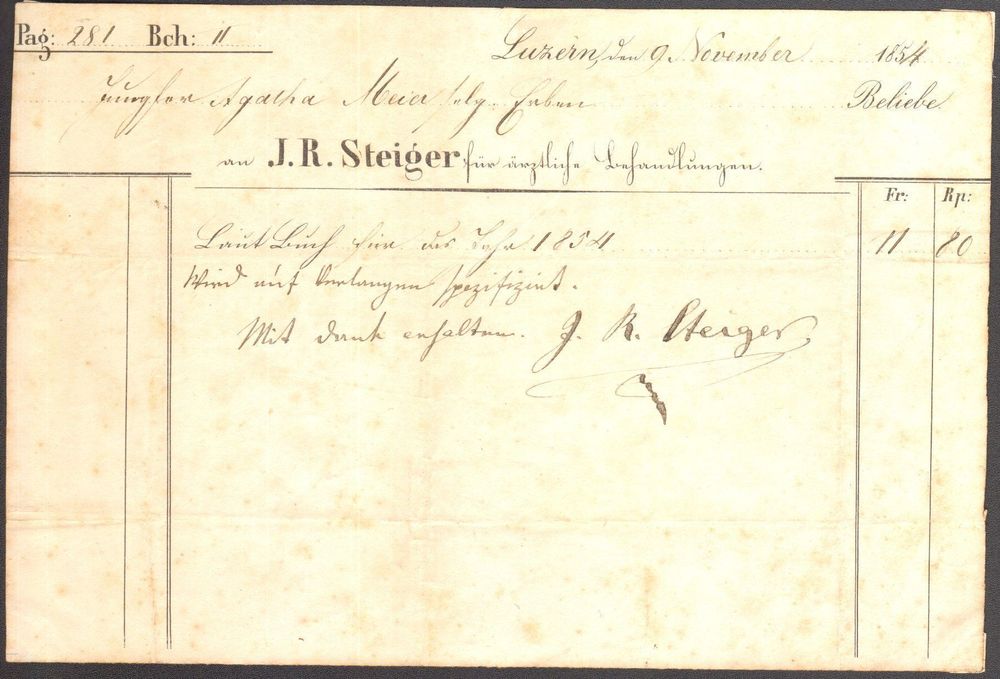 Pag: 281 Bch: 11
Luzern, den 9. November 1854
Jungfer Agatha Meier selg. Erben Beliebe
an J. R. Steiger für ärztliche Behandlungen.
Fr: Rp:
Laut Buch für das Jahr 1854 11 80
Wird auf Verlangen spezifizirt.
Mit Dank erhalten. J. R. Steiger